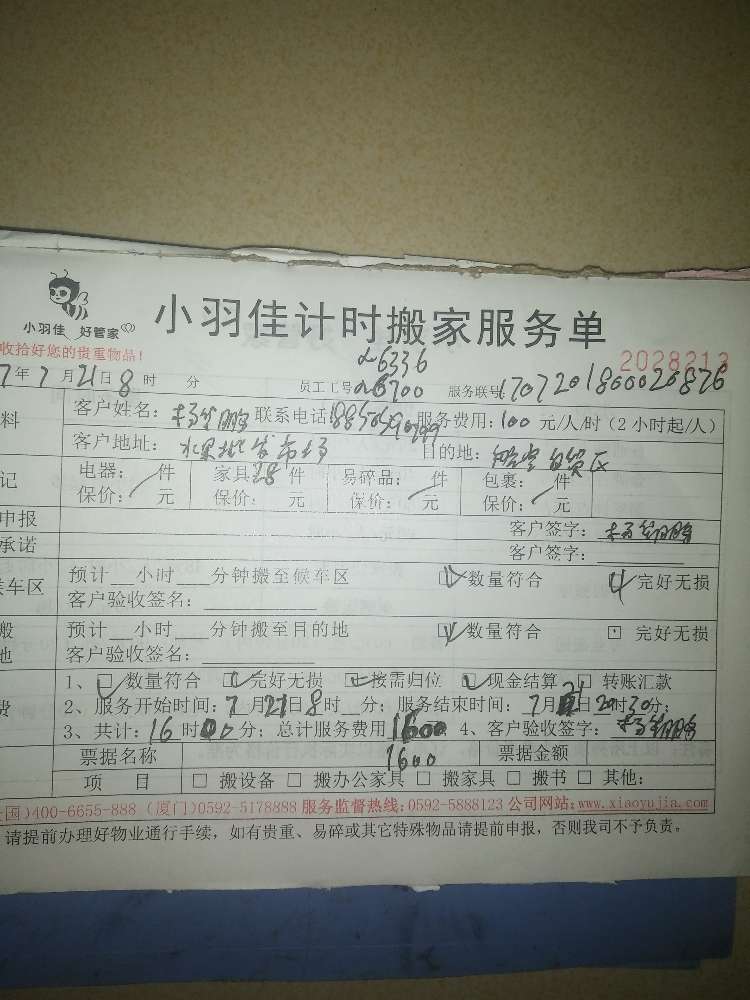 小羽佳 好管家
小羽佳计时搬家服务单
收拾好您的贵重物品!
2028213
26336
7年7月21日8时 分 员工工号 26700 服务联号 1707201800026876
料 客户姓名: 联系电话: 服务费用: 100 元/人/时(2小时起/人)
客户地址: 水果批发市场 目的地: 自贸区
记 电器: 件 家具28件 易碎品: 件 包裹: 件
保价: 元 保价: 元 保价: 元 保价: 元
申报 客户签字:
承诺 客户签字:
候车区 预计__小时___分钟搬至候车区 数量符合 完好无损
客户验收签名:
搬 预计__小时___分钟搬至目的地 数量符合 完好无损
地 客户验收签名:
1、数量符合 完好无损 按需归位 现金结算 转账汇款
费 2、服务开始时间: 7月21日8时 分; 服务结束时间: 7月21日20时30分;
3、共计: 16时00分; 总计服务费用 1600 4、客户验收签字:
票据名称 1600 票据金额
项 目 搬设备 搬办公家具 搬家具 搬书 其他:
全国)400-6655-888 (厦门)0592-5178898 服务监督热线:0592-5888123 公司网站:www.xiaoyujia.com
请提前办理好物业通行手续，如有贵重、易碎或其它特殊物品请提前申报，否则我司不予负责。